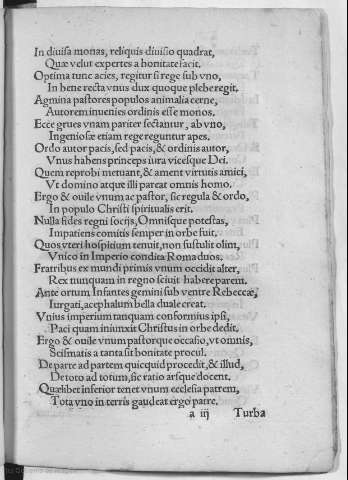 In diuisa monas, reliquis diuisio quadrat,
Quæ velut expertes a bonitate facit.
Optima tunc acies, regitur si rege sub vno,
In bene recta vnus dux quoque plebe regit.
Agmina pastores populos animalia cerne,
Autorem inuenies ordinis esse monos.
Ecce grues vnam pariter sectantur, ab vno,
Ingeniosæ etiam rege reguntur apes.
Ordo autor pacis, sed pacis, & ordinis autor,
Vnus habens princeps iura vicesque Dei.
Quem reprobi metuant, & ament virtutis amici,
Vt domino atque illi pareat omnis homo.
Ergo & ouile vnum ac pastor, sic regula & ordo,
In populo Christi spiritualis erit.
Nulla fides regni socijs, Omnisque potestas,
Impatiens comitis semper in orbe fuit.
Quos vteri hospicium tenuit, non sustulit olim,
Vnico in Imperio condita Roma duos.
Fratribus ex mundi primis vnum occidit alter,
Rex nunquam in regno sciuit habere parem.
Ante ortum Infantes gemini sub ventre Rebeccæ,
Iurgati, acephalum bella duale creat.
Vnius imperium tanquam conformius ipsi,
Paci quam iniunxit Christus in orbe dedit.
Ergo & ouile vnum pastorque occasio, vt omnis,
Scismatis a tanta sit bonitate procul.
De parte ad partem quicquid procedit, & illud,
De toto ad totum, sic ratio arsque docent.
Quælibet inferior tenet vnum ecclesia patrem,
Tota vno in terris gaudeat ergo patre.
a iij Turba